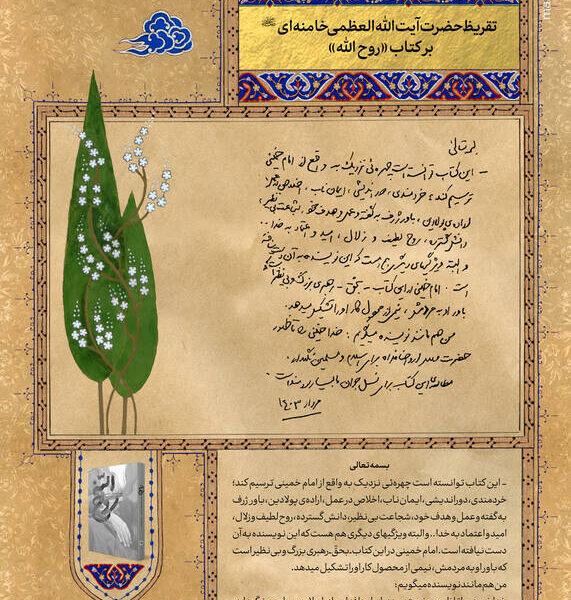 تقریظ حضرت آیت الله العظمی خامنه‌ای
بر کتاب «روح الله»
بسمه‌تعالی
- این کتاب توانسته است چهره‌ئی نزدیک به واقع از امام خمینی
ترسیم کند؛ خردمندی، دوراندیشی، ایمان ناب، اخلاص در عمل،
اراده‌ی پولادین، باور ژرف به گفته و عمل و هدف خود، شجاعت بی‌نظیر،
دانش گسترده، روح لطیف و زلال، امید و اعتماد به خدا...
و البته ویژگیهای دیگری هم هست که این نویسنده به آن دست نیافته
است. امام خمینی در این کتاب - بحق - رهبری بزرگ و بی‌نظیر است که
باور او به مردمش، نیمی از محصول کار او را تشکیل میدهد.
من هم مانند نویسنده میگویم: خدا خمینی را تا ظهور
حضرت مهدی ارواحنا فداه برای اسلام و مسلمین نگهدارد.
مطالعه‌ی این کتاب برای نسل جوان ما بسیار سودمند است
مرداد ۱۴۰۳
روح الله
بسمه تعالی
- این کتاب توانسته است چهره‌ئی نزدیک به واقع از امام خمینی ترسیم کند؛
خردمندی، دوراندیشی، ایمان ناب، اخلاص در عمل، اراده‌ی پولادین، باور ژرف
به گفته و عمل و هدف خود، شجاعت بی‌نظیر، دانش گسترده، روح لطیف و زلال،
امید و اعتماد به خدا.. والبته ویژگیهای دیگری هم هست که این نویسنده به آن
دست نیافته است. امام خمینی در این کتاب. بحق. رهبری بزرگ و بی نظیر است
که باور او به مردمش، نیمی از محصول کار او را تشکیل میدهد.
من هم مانند نویسنده میگویم: